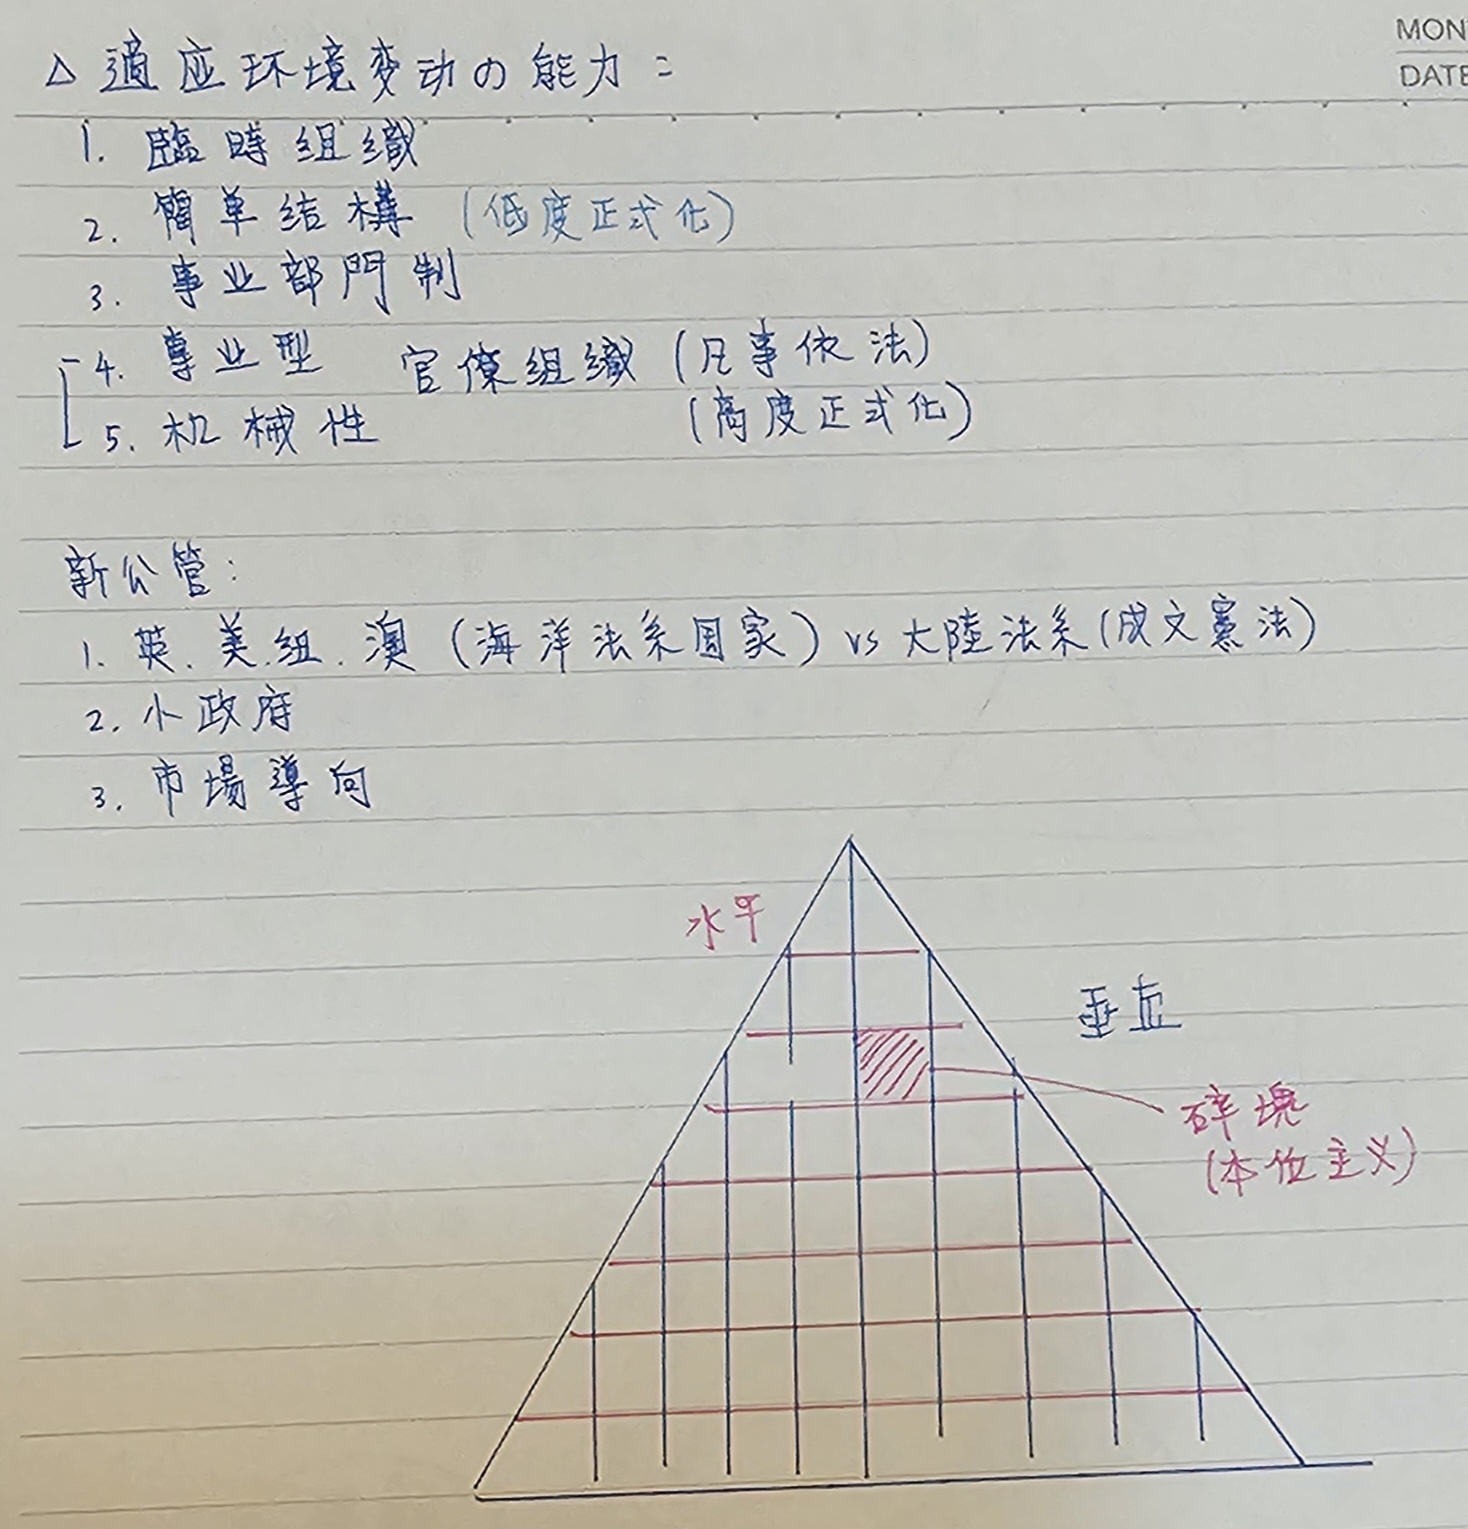 MON
DATE
△ 適应环境変动の能力：
1. 臨時组織
2. 簡单结構（低度正式化）
3. 事业部門制
4. 專业型 官僚组織（凡事依法）
5. 机械性 （高度正式化）
新公管：
1. 英.美.纽.澳（海洋法系国家）vs 大陸法系（成文憲法）
2. 小政府
3. 市場導向
水平
垂直
碎塊
（本位主义）